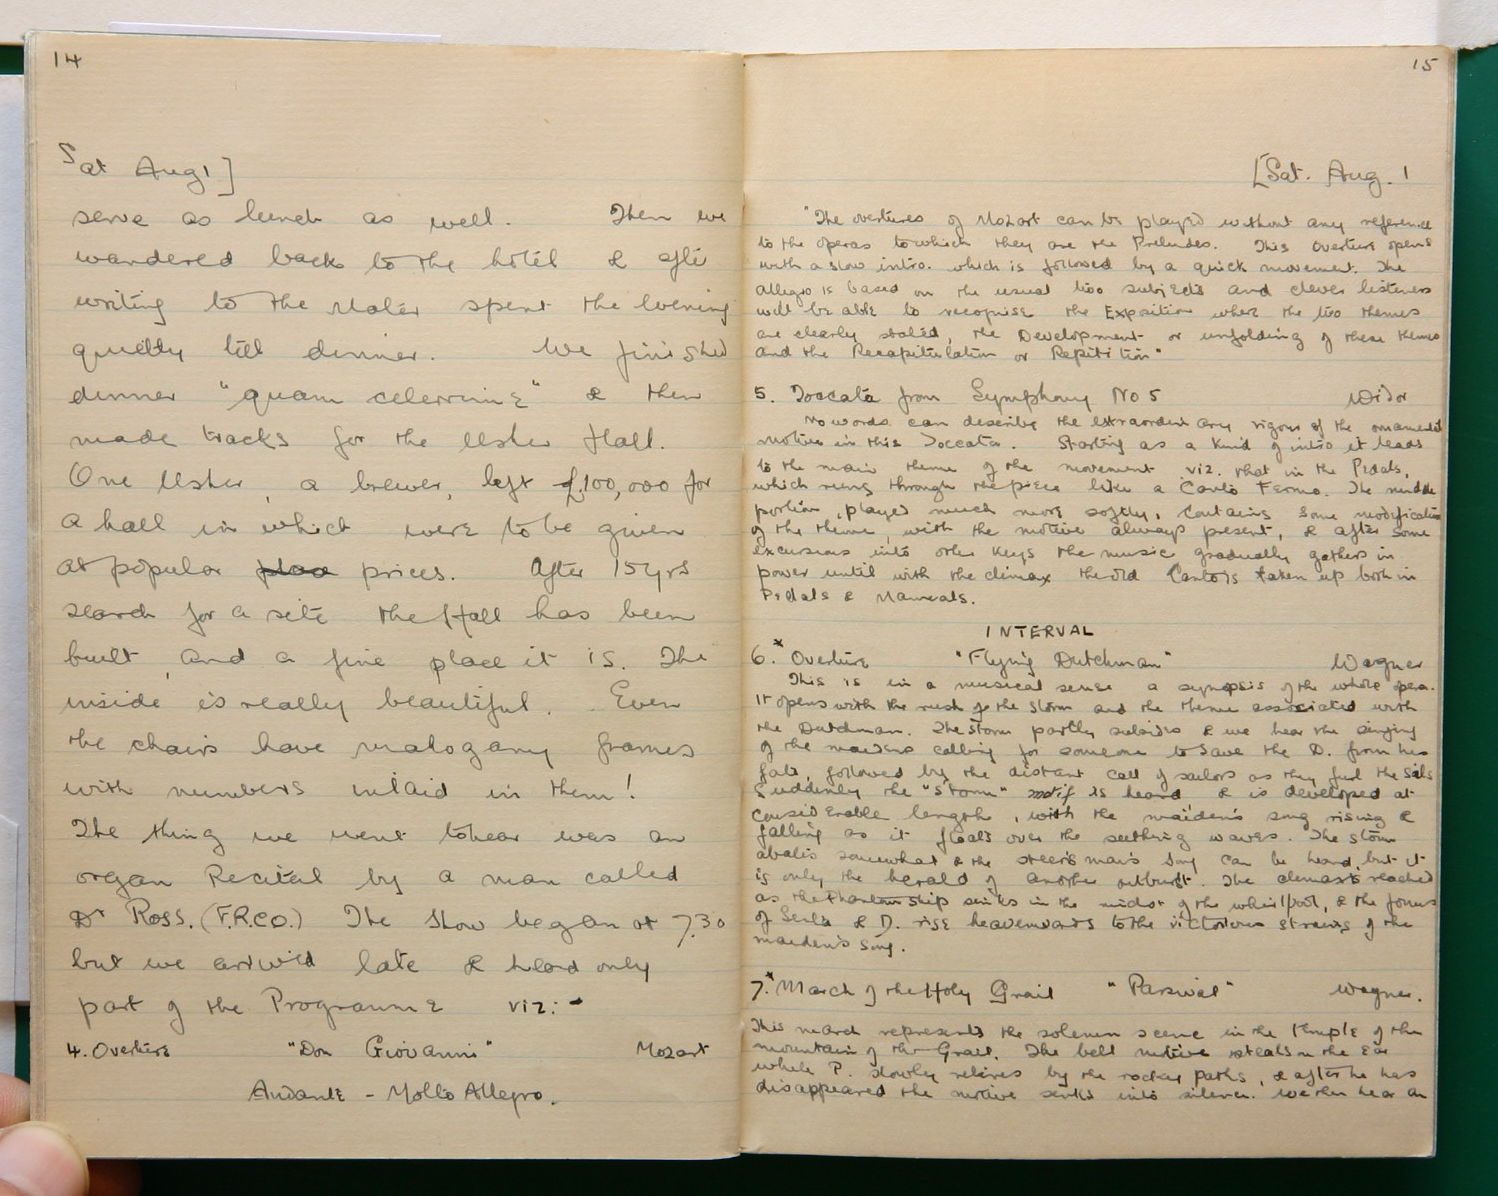 14
Sat Aug 1]
serve as lunch as well. Then we
wandered back to the hôtel & after
writing to the Mater spent the evening
quietly till dinner. We finished
dinner "quam celerrime" & then
made tracks for the Usher Hall.
One Usher, a brewer, left £100,000 for
a hall in which were to be given
at popular prices. After 15 yrs
search for a site the Hall has been
built, and a fine place it is. The
inside is really beautiful. Even
the chairs have mahogany frames
with numbers inlaid in them!
The thing we went to hear was an
organ Recital by a man called
Dr Ross. (F.R.C.O.) The show began at 7.30
but we arrived late & heard only
part of the Programme viz:-
4. Overture "Don Giovanni" Mozart
Andante - Molto Allegro.
15
[Sat. Aug. 1
"The overtures of Mozart can be played without any reference
to the operas to which they are the Preludes. This Overture opens
with a slow intro. which is followed by a quick movement. The
allegro is based on the usual two subjects and clever listeners
will be able to recognise the Exposition where the two themes
are clearly stated, the Development or unfolding of these themes
and the Recapitulation or Repitition"
5. Toccata from Symphony No 5 Widor
No words can describe the extraordinary vigour of the ornamental
motive in this Toccata. Starting as a kind of intro it leads
to the main theme of the movement viz. that in the Pedals,
which runs through the piece like a Canto Fermo. The middle
portion, played much more softly, contains some modification
of the theme, with the motive always present, & after some
excursions into other keys the music gradually gathers in
power until with the climax the old Canto is taken up both in
Pedals & Manuals.
INTERVAL
6.* Overture "Flying Dutchman" Wagner
This is in a musical sense a synopsis of the whole opera.
It opens with the rush of the storm and the theme associated with
the Dutchman. The storm partly subsides & we hear the singing
of the maidens calling for someone to save the D. from his
fate, followed by the distant call of sailors as they furl the sails
Suddenly the "storm" motif is heard & is developed at
considerable length, with the maiden's song rising &
falling as it floats over the seething waves. The storm
abates somewhat & the steersman's song can be heard, but it
is only the herald of another outburst. The climax is reached
as the Phantom ship sinks in the midst of the whirlpool, & the forms
of Senta & D. rise heavenwards to the victorious strains of the
maiden's song.
7.* March of the Holy Grail "Parsival" Wagner.
This march represents the solemn scene in the temple of the
mountain of the Grail. The bell motive steals on the ear
while P. slowly retires by the rocky paths, & after he has
disappeared the motive sinks into silence. We then hear an